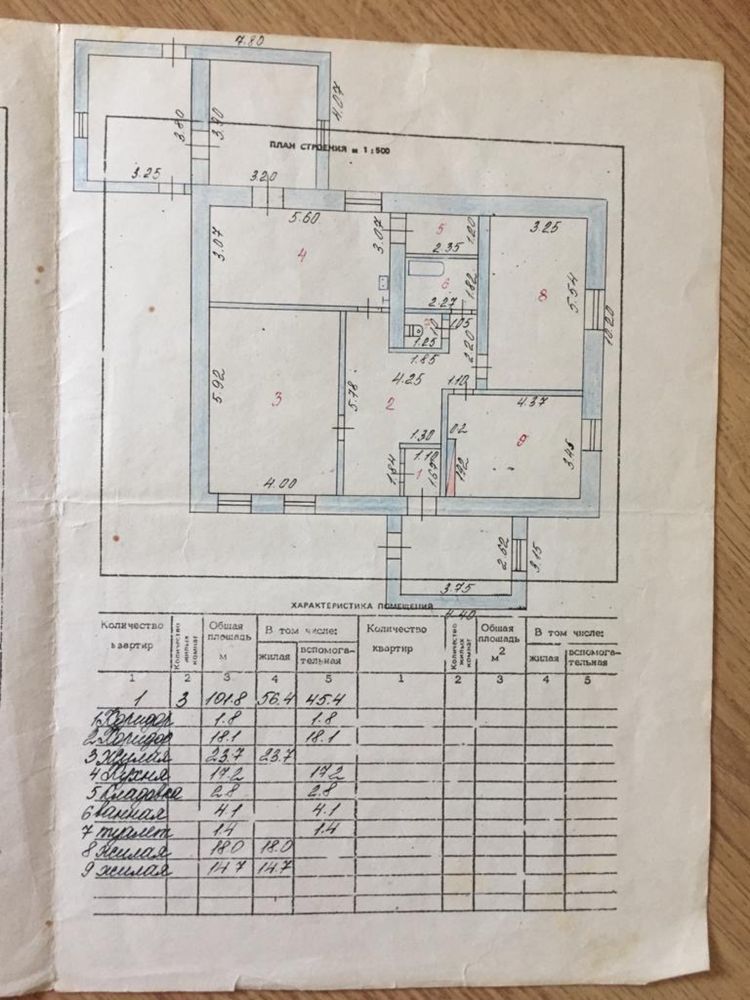 7.80
4.07
3.80
3.90
ПЛАН СТРОЕНИЯ м 1:500
3.25
3.20
5.60
3.07
3.07
4
5
1.20
2.35
3.25
6
1.82
2.27
8
5.54
10.20
1.05
1.25
1.85
2.20
5.92
3
5.78
4.25
2
1.10
4.37
0.2
9
3.45
1.30
1.10
1.84
1
1.67
1.92
4.00
2.62
3.15
3.75
4.40
ХАРАКТЕРИСТИКА ПОМЕЩЕНИЙ
Количество квартир Количество жилых комнат Общая площадь м В том числе: Количество квартир Количество жилых комнат Общая площадь м2 В том числе:
жилая вспомога-тельная жилая вспомога-тельная
1 2 3 4 5 1 2 3 4 5
1 3 101.8 56.4 45.4
1 Коридор 1.8 1.8
2 Коридор 18.1 18.1
3 Жилая 23.7 23.7
4 Кухня 17.2 17.2
5 Кладовка 2.8 2.8
6 ванная 4.1 4.1
7 туалет 1.4 1.4
8 жилая 18.0 18.0
9 жилая 14.7 14.7